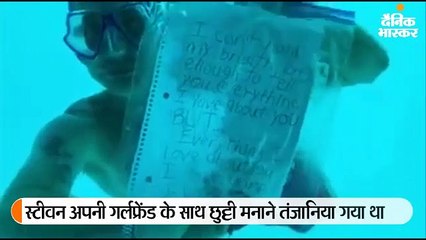 दैनिक
भास्कर
I can't hold
my breath long
enough to tell
you everything
I love about you
BUT...
Everything I
love about
स्टीवन अपनी गर्लफ्रेंड के साथ छुट्टी मनाने तंजानिया गया था